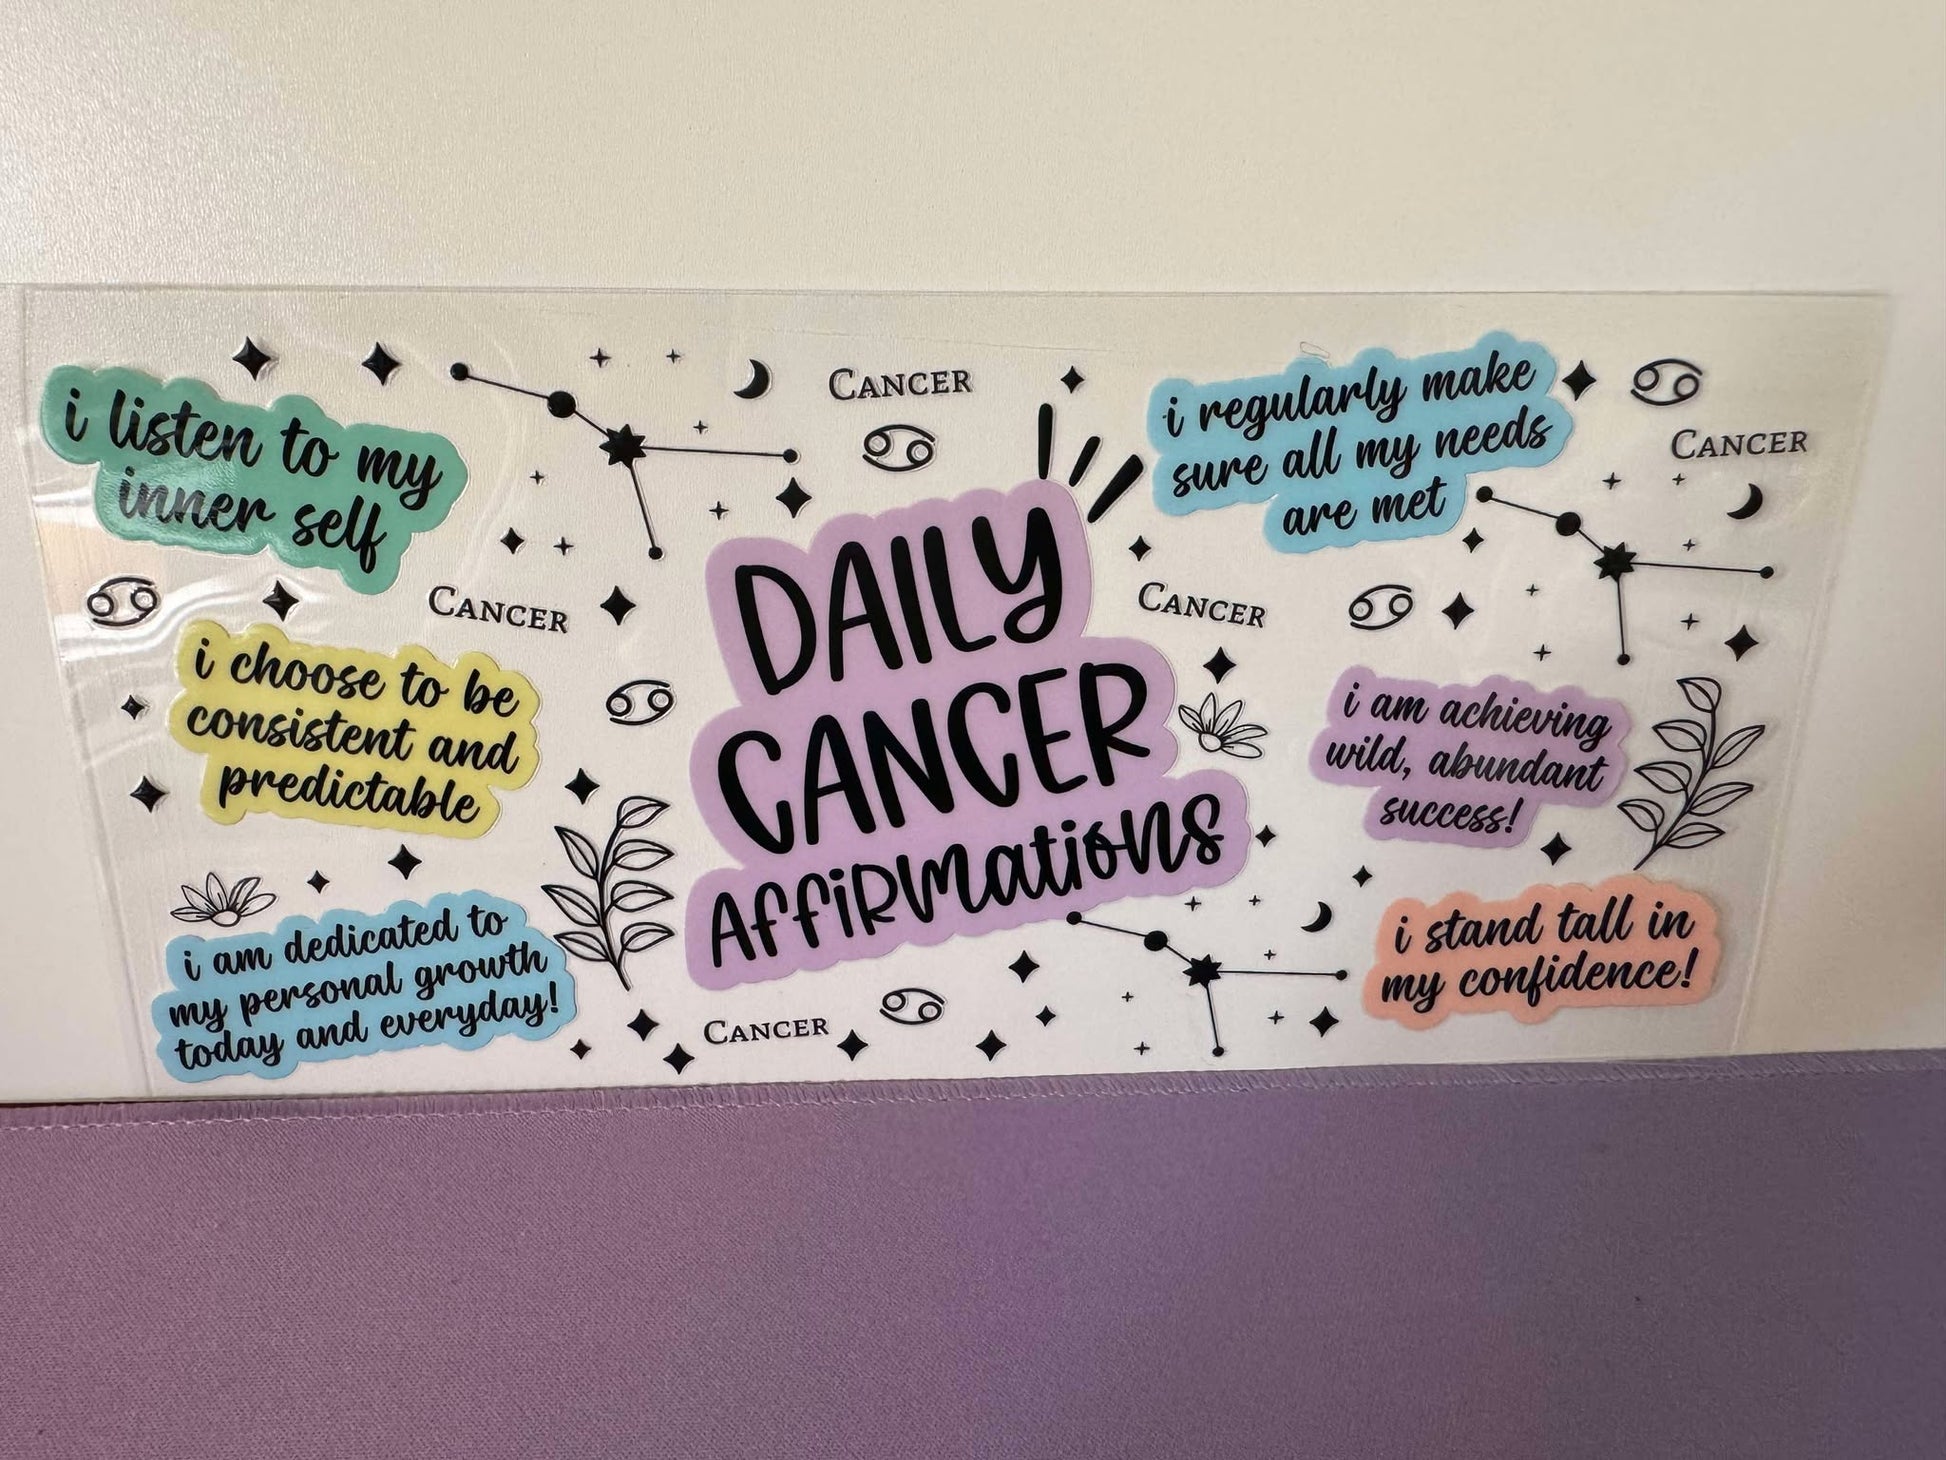 i listen to my
inner self
CANCER
CANCER
i choose to be
consistent and
predictable
i am dedicated to
my personal growth
today and everyday!
DAILY
CANCER
AFFIRMATIONS
CANCER
i regularly make
sure all my needs
are met
CANCER
CANCER
i am achieving
wild, abundant
success!
i stand tall in
my confidence!